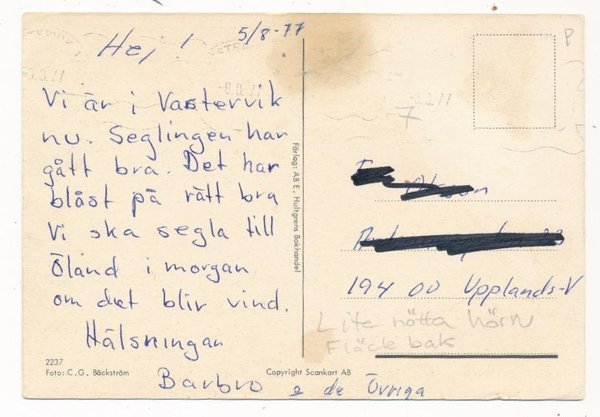 5/8-77
Hej!
Vi är i Västervik
nu. Seglingen har
gått bra. Det har
blåst på rätt bra
Vi ska segla till
Öland i morgan
om det blir vind.
Hälsningan
Barbro o de Övriga
2237
Foto: C. G. Bäckström
Förlag: AB E. Hultgrens Bokhandel
Copyright Scankort AB
P
7
194 00 Upplands-V
Lite nötta hörn
Fläck bak